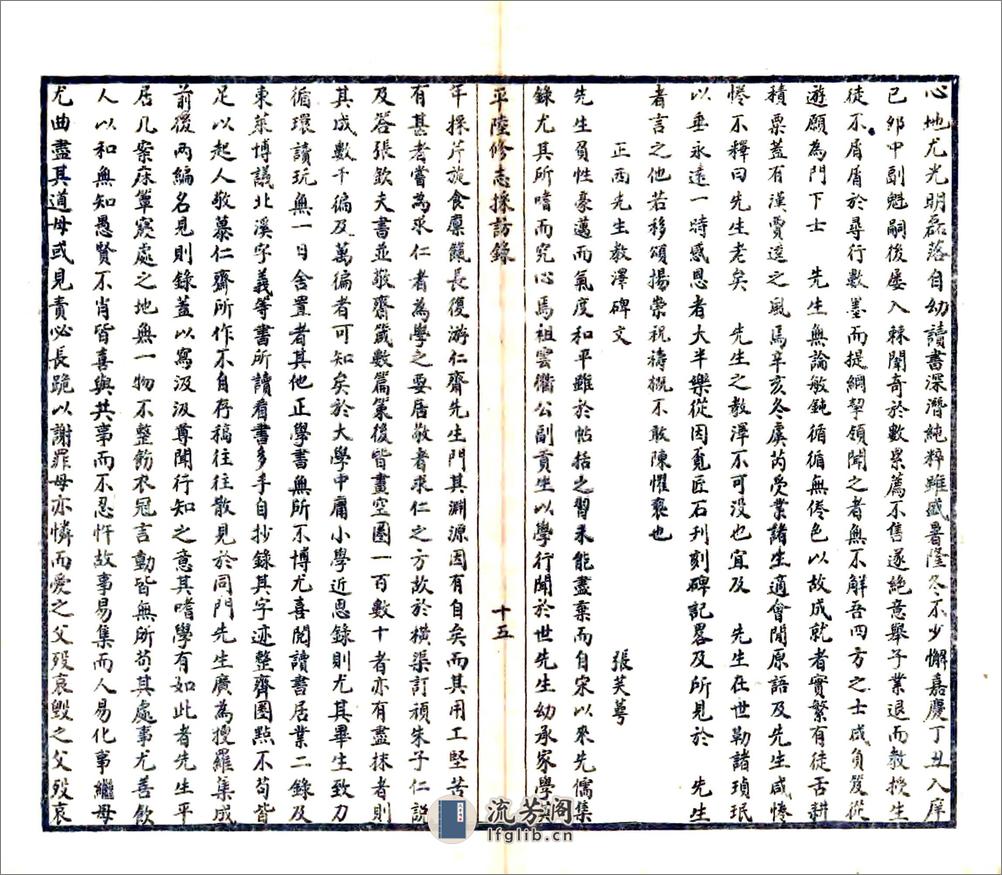 心地尤光明磊落自幼讀書深潛純粹雖盛暑隆冬不少懈嘉慶丁丑入庠
己卯中副魁嗣後屢入棘闈奇於數累薦不售遂絕意舉子業退而教授生
徒不屑屑於尋行數墨而提綱挈領聞之者無不解吾四方之士咸負笈從
遊願為門下士 先生無論敏鈍循循無倦色以故成就者實繁有徒舌耕
積粟蓋有漢賈逵之風焉辛亥冬虞芮受業諸生適會閒原語及先生咸惓
惓不釋曰先生老矣 先生之教澤不可沒也宜及 先生在世勒諸瑣珉
以垂永遠一時感恩者大半樂從因覓匠石刊刻碑記畧及所見於 先生
者言之他若移頌揚崇祝禱概不敢陳懼褻也
正西先生教澤碑文 張芙蕚
先生負性豪邁而氣度和平雖於帖括之習未能盡棄而自宋以來先儒集
錄尤其所嗜而究心焉祖雲衢公副貢生以學行聞於世先生幼承家學
平陸修志採訪錄 十五
年採芹旋食廩餼長復游仁齋先生門其淵源固有自矣而其用工堅苦
有甚者嘗為求仁者為學之要居敬者求仁之方故於橫渠訂頑朱子仁説
及答張欽夫書並敬齋箴數篇策後皆畫空圈一百數十者亦有盡抹者則
其成數千徧及萬徧者可知矣於大學中庸小學近思錄則尤其畢生致力
循環讀玩無一日舍置者其他正學書無所不博尤喜閱讀書居業二錄及
東萊博議北溪字義等書所讀看書多手自抄錄其字迹整齊圈點不苟皆
足以起人敬慕仁齋所作不自存稿往往散見於同門先生廣為搜羅集成
前後兩編名見則錄蓋以寓汲汲尊聞行知之意其嗜學有如此者先生平
居几案牀簟寢處之地無一物不整飭衣冠言動皆無所苟其處事尤善飲
人以和無知愚賢不肖皆喜與共事而不忍忤故事易集而人易化事繼母
尤曲盡其道母或見責必長跪以謝罪母亦憐而愛之父歿哀毀之父歿哀
流芳閣
lfglib.cn